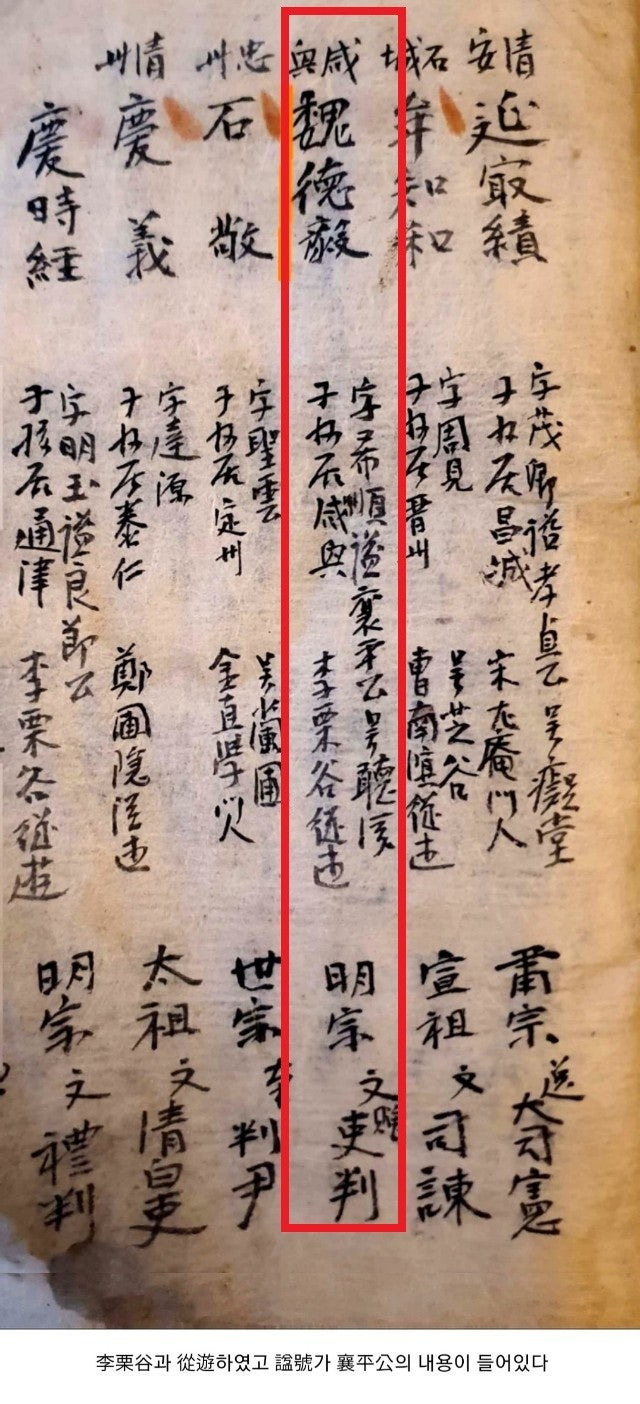 清安
延最績
字茂卿諡孝貞公号癡堂
子孫居昌城
宋尤庵門人
肅宗
送
大司憲
石城
牟知和
字周見
号芝谷
子孫居晋州
曺南冥從遊
宣祖
文
司諫
咸興
魏德毅
字希順諡襄平公号聽溪
子孫居咸興
李栗谷從遊
明宗
文
贈
吏判
忠州
石敬
字聖雲
子孫居定州
金直學門人
世宗
判尹
淸州
慶義
字達源
子孫居泰仁
鄭圃隱從遊
太祖
文
清白吏
慶時經
字明玉諡良節公
子孫居通津
李栗谷從遊
明宗
文
禮判
李栗谷과 從遊하였고 諡號가 襄平公의 내용이 들어있다